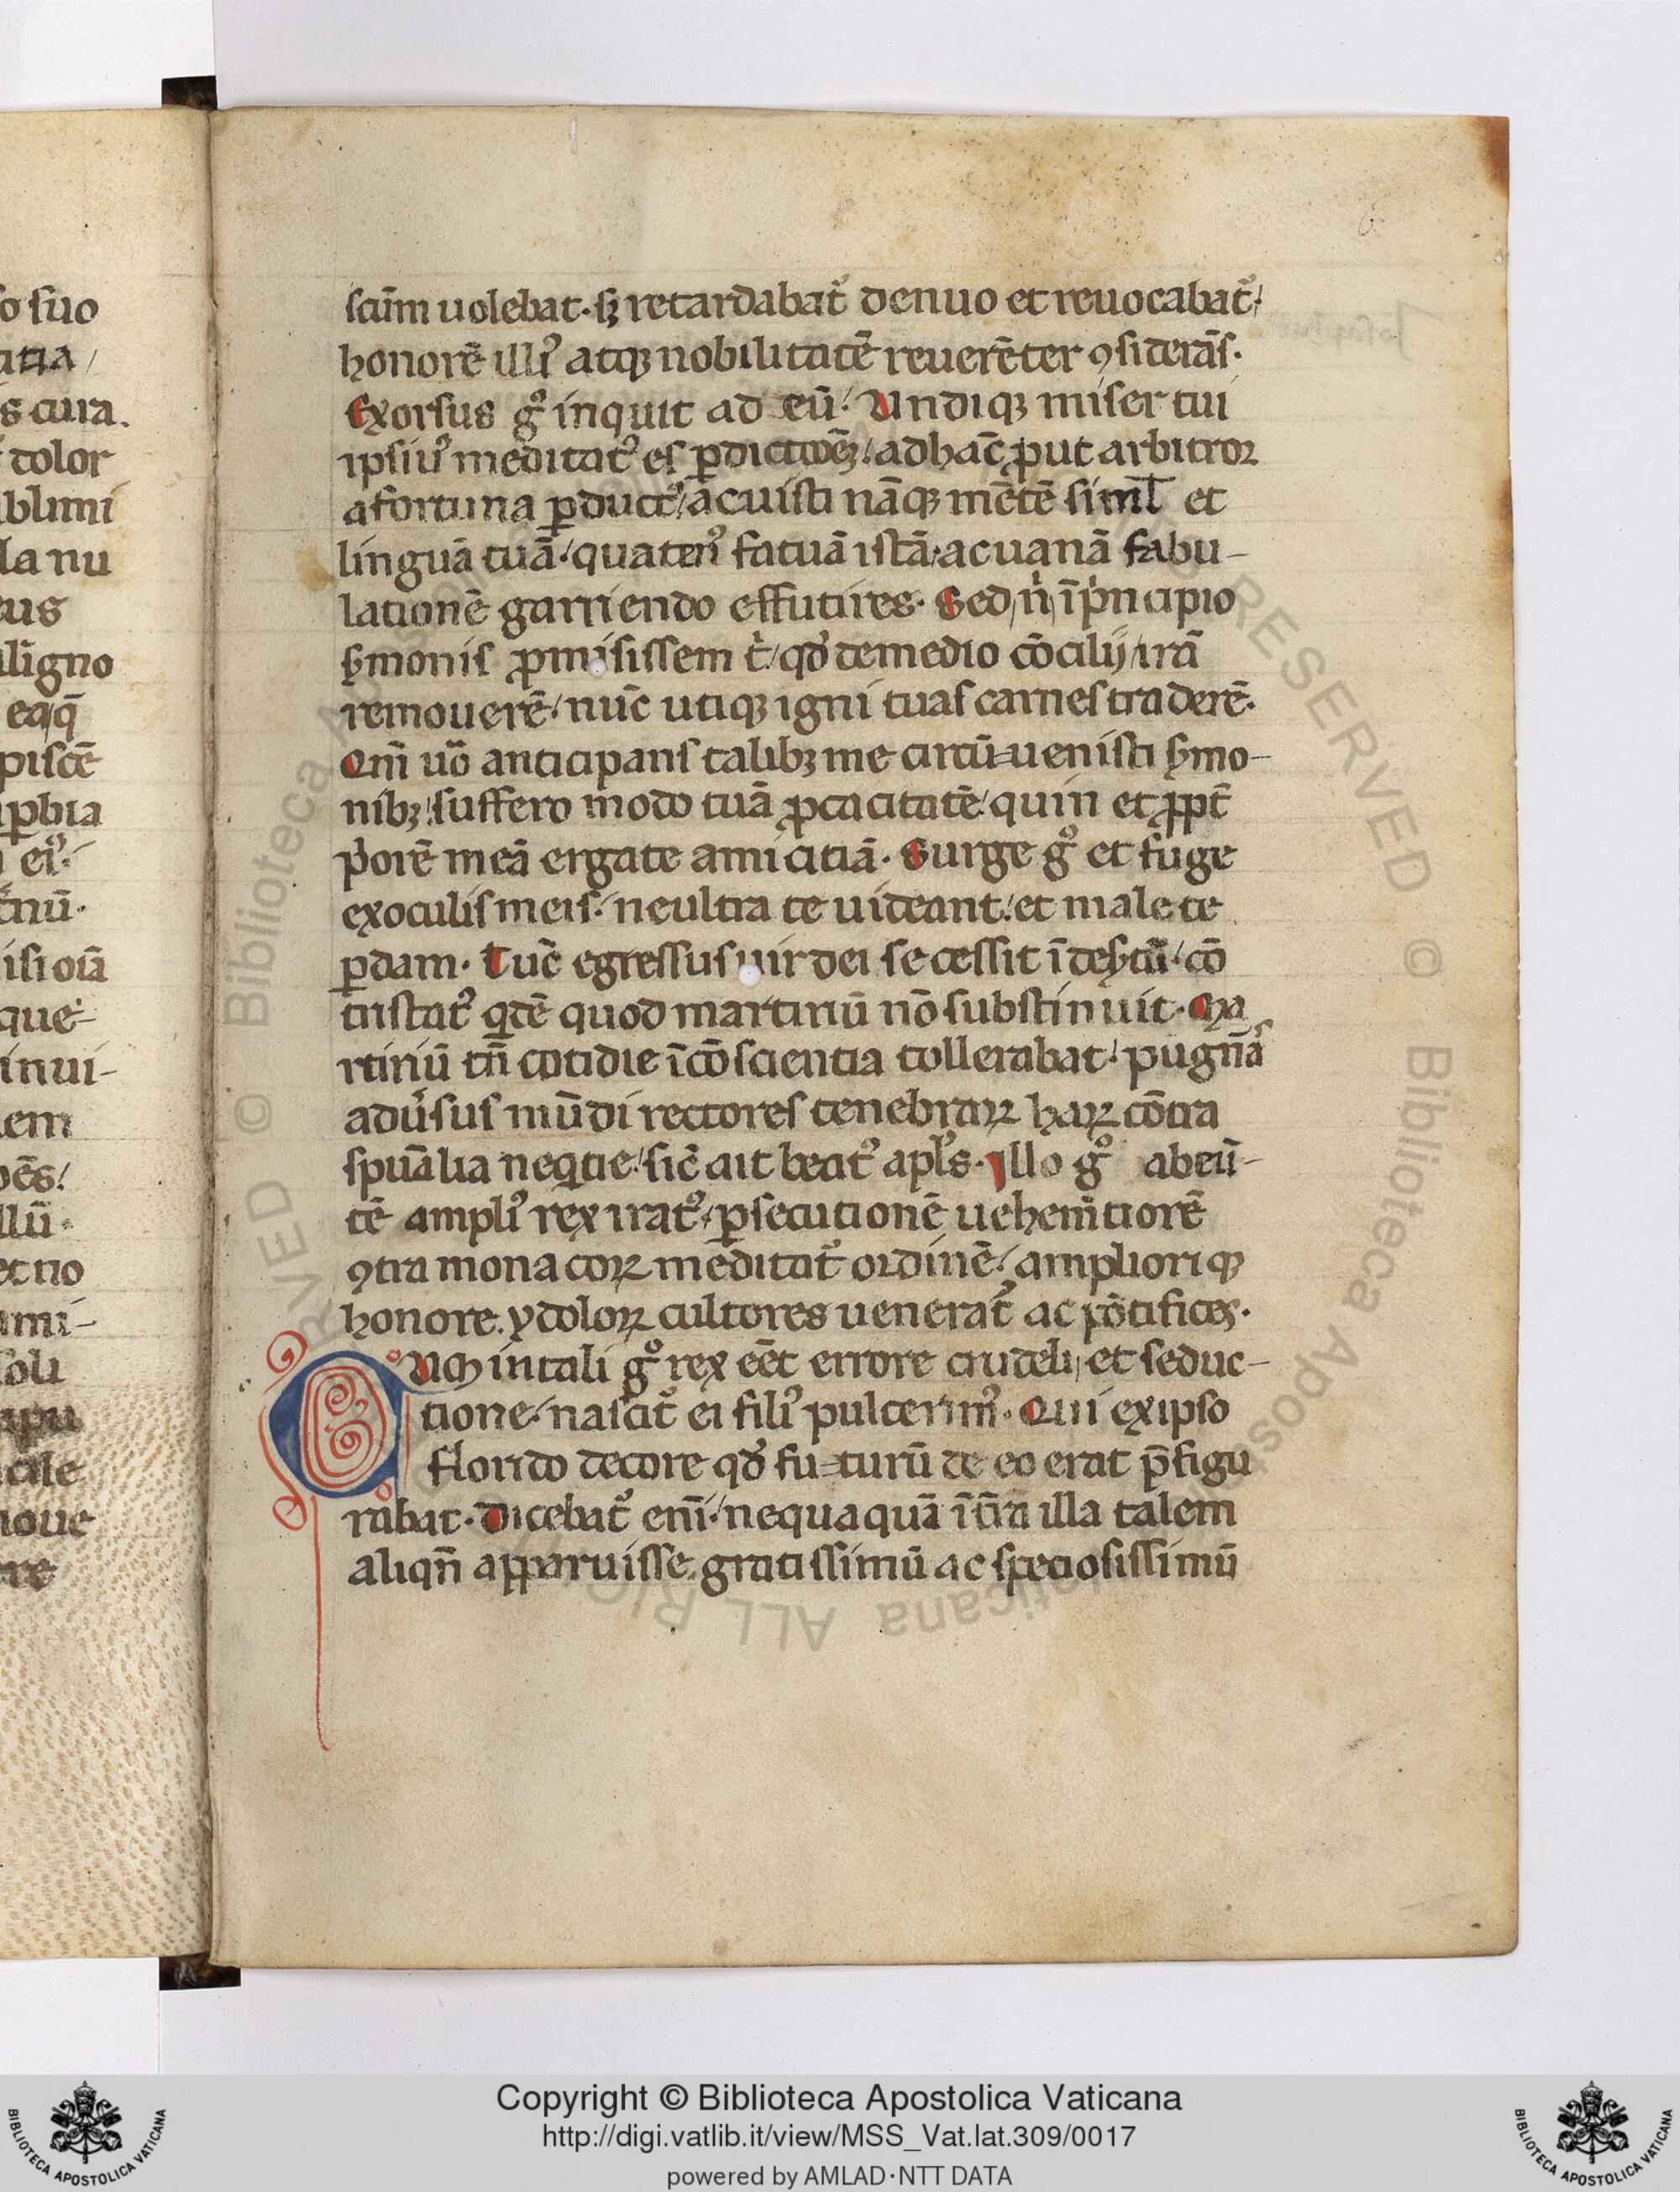 6
scim̄ uolebat· sꝫ retardabat᷑ denuo et reuocabat᷑/
honorē illiꝰ atqꝫ nobilitatē reuerēter ꝯsiderās·
Exorsus gͦ inquit ad eū/ Undiqꝫ miser tui
ipsiuꝰ meditatꝰ es ꝑdictiōeꝫ/ ad hāc ꝓut arbitror
a fortuna ꝑductꝰ/ acuisti nāqꝫ mētē siml̄ et
linguā tuā/ quatenꝰ fatuā istā/ ac uanā fabu-
lationē garriendo effutires· Sed nͥ ī pͥncipio
sermonis ꝓmisissem tͥ/ qđ de medio cōcilij/ irā
remouerē/ nūc utiqꝫ igni tuas carnes traderē·
Qm̄ uō anticipans talibꝫ me circū=uenisti sermo-
nibꝫ/ suffero modo tuā ꝓcacitatē/ quin et ꝓpt̄
pͥorē meā erga te amicitiā· Surge gͦ et fuge
ex oculis meis/ ne ultra te uideant/ et male te
ꝑdam· Tūc egressus uir dei secessit ī desertū/ cō
tristatꝰ qͥdē quod martiriū nō substinuit· Ma
rtiriū tn̄ cotidie ī cōscientia tollerabat/ pugnās
aduͥsus mūdi rectores tenebraꝝ haꝝ cōtra
spūalia neqͥtie/ sic̄ ait beatꝰ apl̄s· Illo gͦ abeū-
tē ampliꝰ rex iratꝰ/ ꝑsecutionē uehem̄tiorē
ꝯtra monacoꝝ meditat᷑ ordinē/ ampliori qꝫ
honore ydoloꝝ cultores uenerat᷑ ac pōtifices·
CUM in tali gͦ rex eēt errore crudeli, et seduc-
tione/ nascit᷑ ei filiꝰ pulcerimꝰ· Qui ex ipso
florido decore qđ fu=turū de eo erat p̄figu
rabat· Dicebat᷑ eni/ nequaquā ī tr̄a illa talem
aliqn̄ apparuisse gratissimū ac speciosissimū
Copyright © Biblioteca Apostolica Vaticana
http://digi.vatlib.it/view/MSS_Vat.lat.309/0017
powered by AMLAD·NTT DATA
BIBLIOTECA APOSTOLICA VATICANA
BIBLIOTECA APOSTOLICA VATICANA